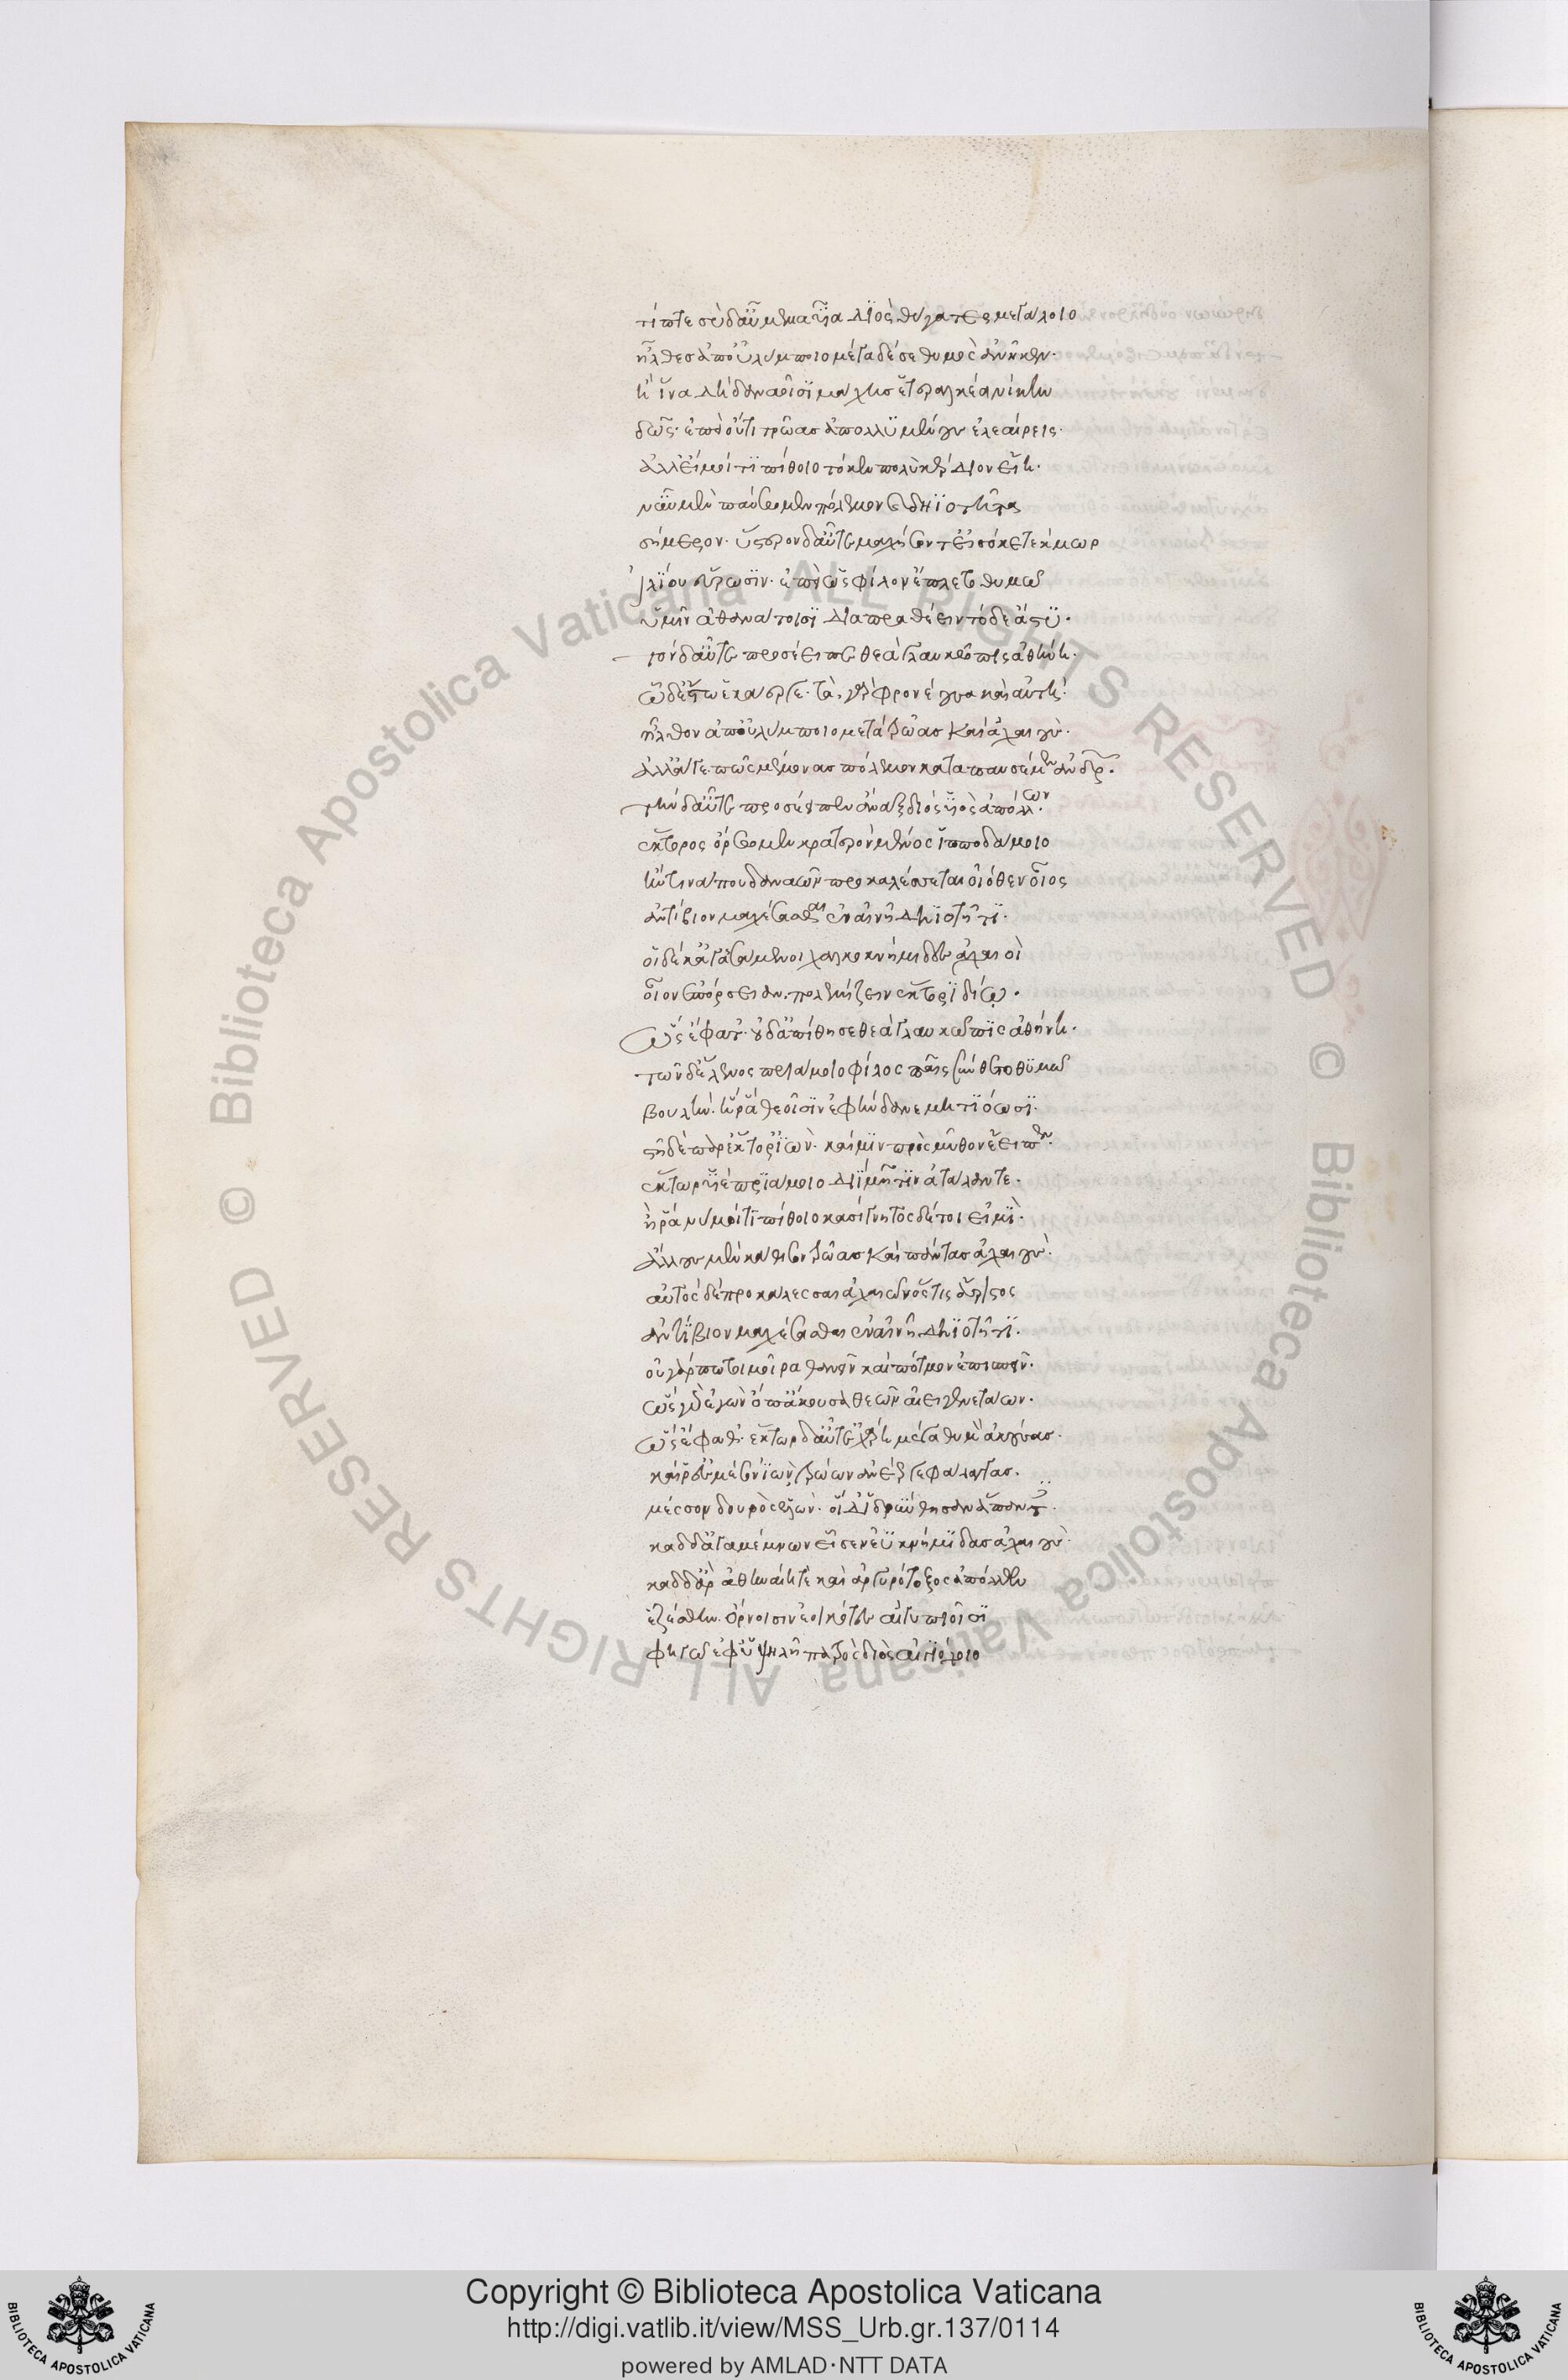 τίπτε σὺ δ' αὖ μεμαυῖα Διὸς θύγατερ μεγάλοιο
ἦλθες ἀπ' οὐλύμποιο μέγα δέ σε θυμὸς ἀνῆκεν·
ἦ ἵνα δὴ δαναοῖσι μάχης ἑτεραλκέα νίκην
δῷς· ἐπεὶ οὔτι τρῶας ἀπολλυμένους ἐλεαίρεις·
ἀλλ' εἴ μοί τι πίθοιο τό κεν πολὺ κέρδιον εἴη·
νῦν μὲν παύσωμεν πόλεμον καὶ δηϊοτῆτα
σήμερον· ὕστερον δ' αὖτε μαχήσοντ' εἰσόκε τέκμωρ
ἰλίου εὕρωσιν· ἐπεὶ ὣς φίλον ἔπλετο θυμῷ
ὑμῖν ἀθανάτοισι διαπραθέειν τόδε ἄστυ·
τὸν δ' αὖτε προσέειπε θεὰ γλαυκῶπις ἀθήνη·
ὧδ' ἔστω ἑκάεργε· τὰ γὰρ φρονέουσα καὶ αὐτὴ
ἦλθον ἀπ' οὐλύμποιο μετὰ τρῶας καὶ ἀχαιούς·
ἀλλ' ἄγε πῶς μέμονας πόλεμον καταπαυσέμεν ἀνδρῶν·
τὴν δ' αὖτε προσέειπεν ἄναξ διὸς υἱὸς ἀπόλλων·
ἕκτορος ὄρσωμεν κρατερὸν μένος ἱπποδάμοιο
ἤν τινά που δαναῶν προκαλέσσεται οἰόθεν οἶος
ἀντίβιον μαχέσασθαι ἐν αἰνῇ δηϊοτῆτι·
οἱ δέ κ' ἀγασσάμενοι χαλκοκνήμιδες ἀχαιοὶ
οἶον ἐπόρσειαν πολεμίζειν ἕκτορι δίῳ·
ὣς ἔφατ' οὐδ' ἀπίθησε θεὰ γλαυκῶπις ἀθήνη·
τῶν δ' ἕλενος πριάμοιο φίλος παῖς σύνθετο θυμῷ
βουλήν· ἥ ῥα θεοῖσιν ἐφήνδανε μητιόωσι·
στῆ δὲ παρ' ἕκτορ' ἰὼν καί μιν πρὸς μῦθον ἔειπεν·
ἕκτωρ υἱὲ πριάμοιο διῒ μῆτιν ἀτάλαντε·
ἦ ῥά νύ μοί τι πίθοιο κασίγνητος δέ τοι εἰμὶ·
ἄλλους μὲν κάθισον τρῶας καὶ πάντας ἀχαιούς·
αὐτὸς δὲ προκάλεσσαι ἀχαιῶν ὅστις ἄριστος
ἀντίβιον μαχέσασθαι ἐν αἰνῇ δηϊοτῆτι·
οὐ γάρ πώ τοι μοῖρα θανεῖν καὶ πότμον ἐπισπεῖν·
ὣς γὰρ ἐγὼν ὄπ' ἄκουσα θεῶν αἰειγενετάων·
ὣς ἔφαθ' ἕκτωρ δ' αὖτε χάρη μέγα μῦθον ἀκούσας·
καί ῥ' ἐς μέσσον ἰὼν τρώων ἀνέεργε φάλαγγας·
μέσσου δουρὸς ἑλών· οἱ δ' ἱδρύνθησαν ἅπαντες·
καδ δ' ἀγαμέμνων εἷσεν ἐϋκνήμιδας ἀχαιούς·
καδ δ' ἄρ' ἀθηναίη τε καὶ ἀργυρότοξος ἀπόλλων
ἑζέσθην ὄρνισιν ἐοικότες αἰγυπιοῖσι
φηγῷ ἐφ' ὑψηλῇ πατρὸς διὸς αἰγιόχοιο
© Biblioteca Apostolica Vaticana ALL RIGHTS RESERVED © Biblioteca Apostolica Vaticana ALL RIGHTS RESERVED
Copyright © Biblioteca Apostolica Vaticana
http://digi.vatlib.it/view/MSS_Urb.gr.137/0114
powered by AMLAD·NTT DATA
BIBLIOTECA APOSTOLICA VATICANA
BIBLIOTECA APOSTOLICA VATICANA